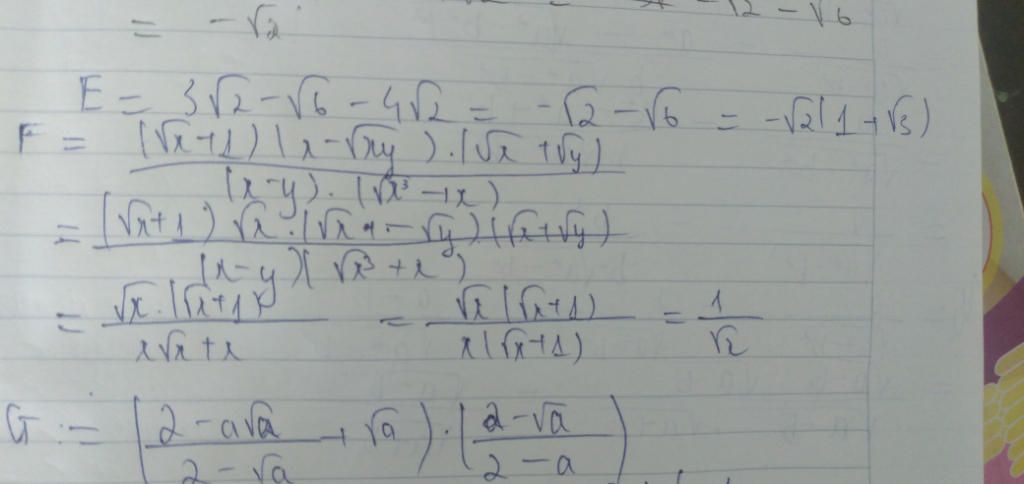 = -√2
-√2 - √6
E = 3√2 - √6 - 4√2 = -√2 - √6 = -√2(1+√3)
F = (√x+1)(x-√xy).(√x+√y) / (x-y).(√x³+x)
= (√x+1)√x.(√x-√y)(√x+√y) / (x-y)(√x³+x)
= √x.(√x+1) / x√x+x = √x(√x+1) / x(√x+1) = 1/√x
G := (2-a√a / 2-√a + √a).(2-√a / 2-a)